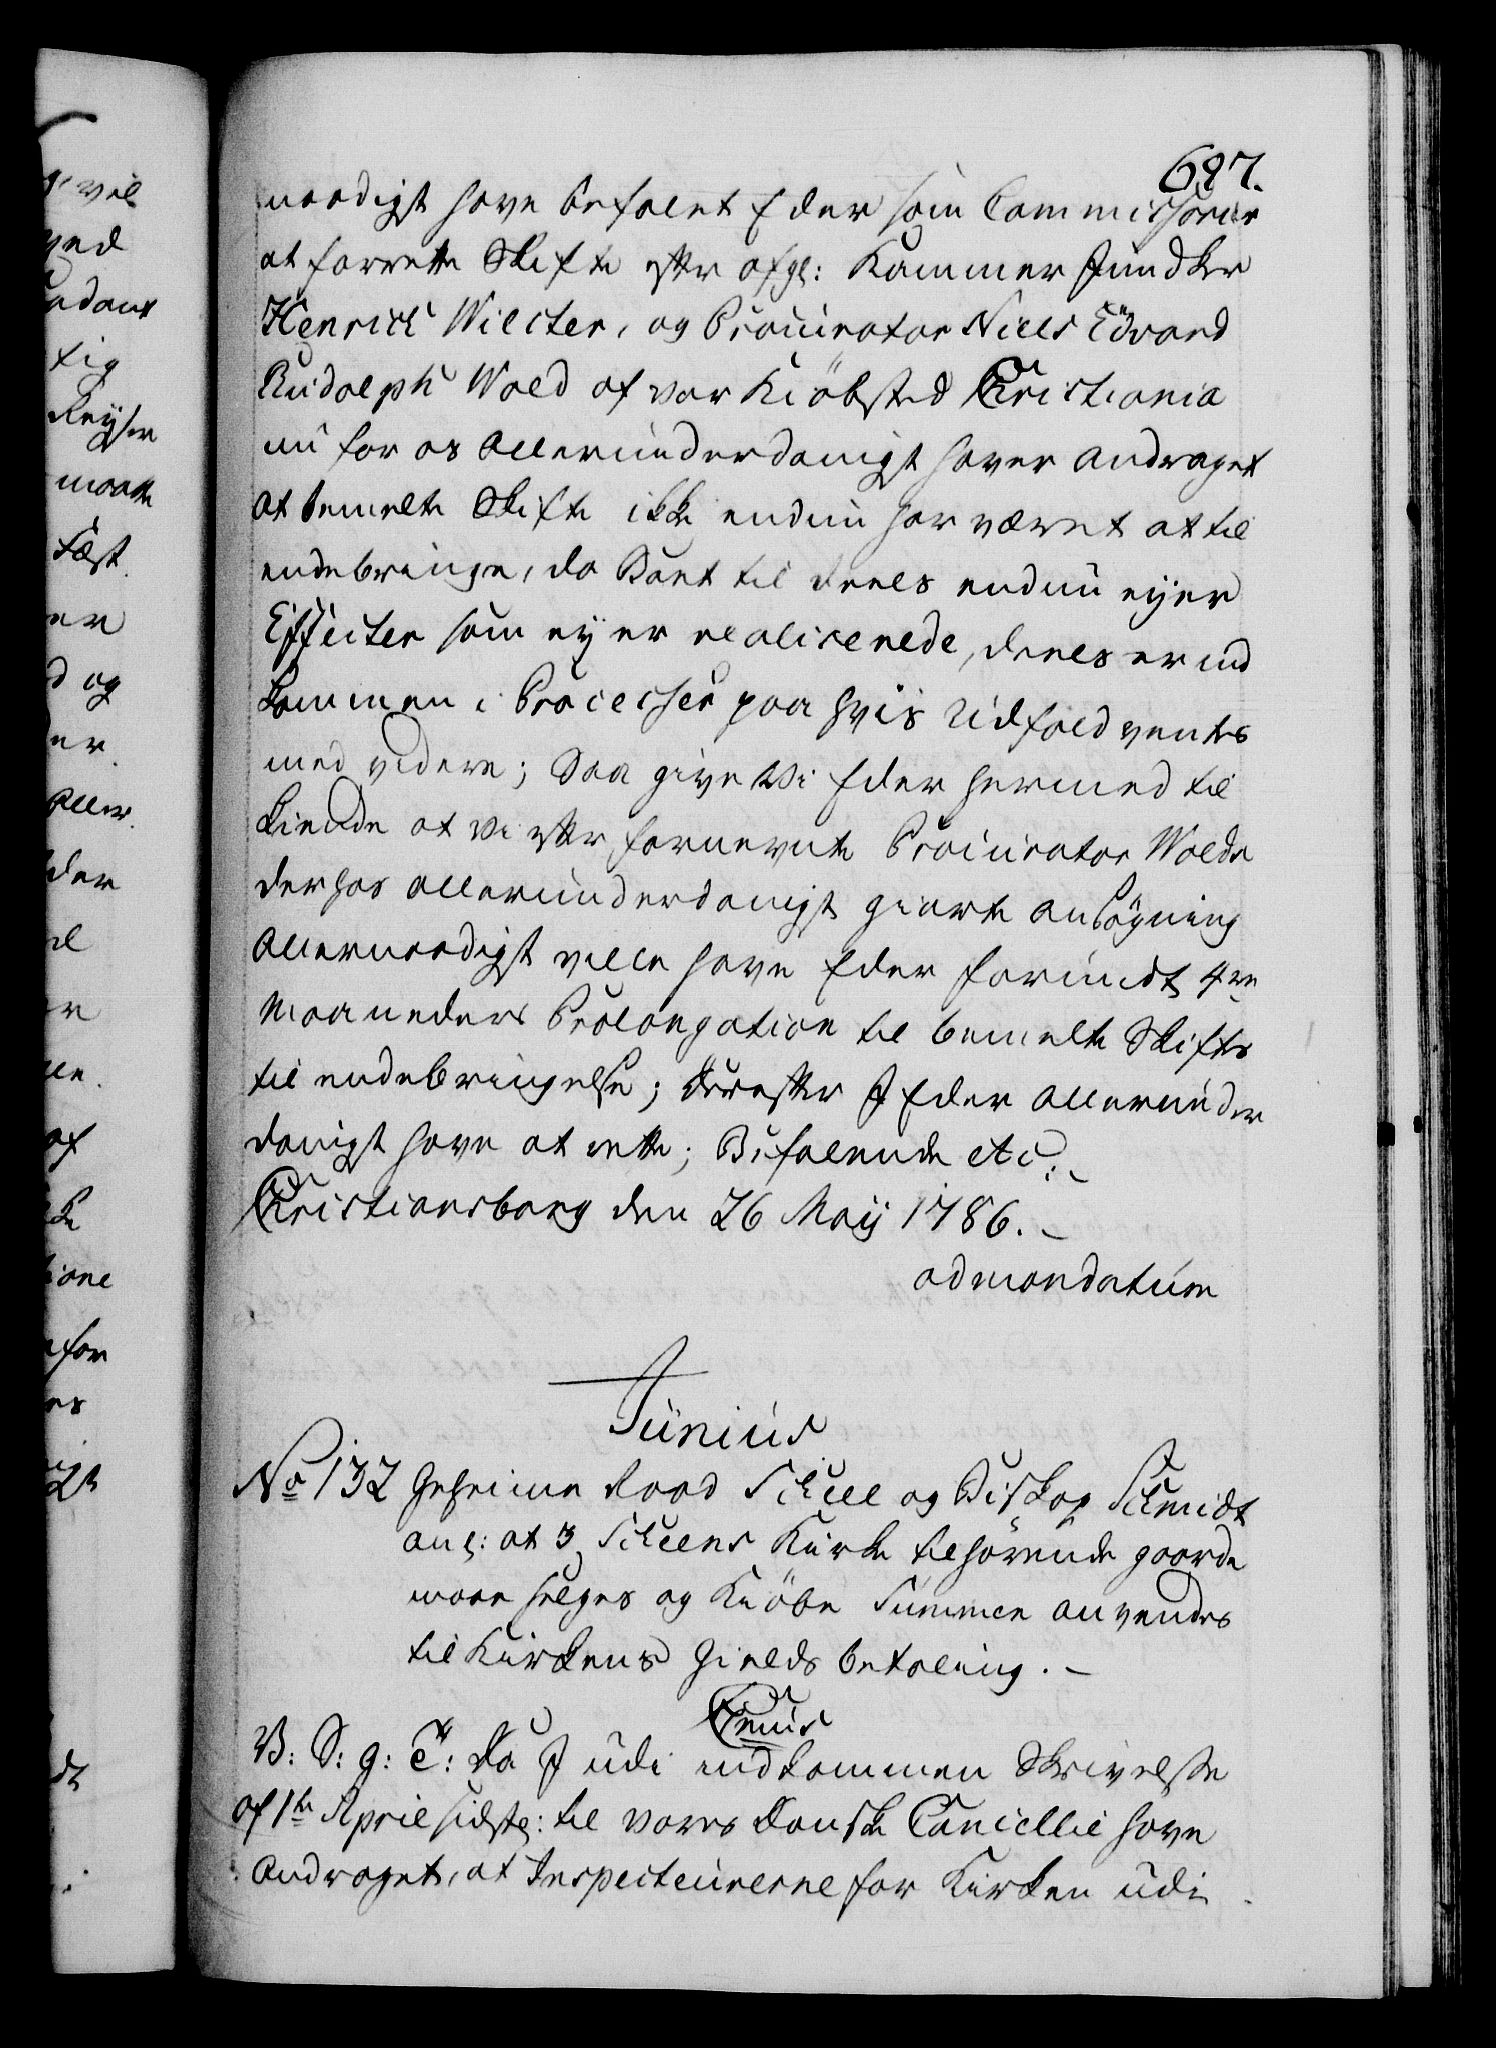 687.
naadigst have befalet Eder som Commissarier
at forrette Skifte efter afg: Kammer Junker
Henrich Wilster, og Procurator Niels Edvard
Rudolph Wold af vor Kiöbsted Christiania
nu for os Allerunderdanigst haver andraget
at bemelte Skifte ikke endnu har været at til
endebringe, da Boet til deels endnu eyer
Effecter som ey er realiserede, deels er ind
kommen i Processer paa hvis Udfald ventes
med videre; Saa give Vi Eder hermed til
kiende at vi efter fornevnte Procurator Wolds
derhos allerunderdanigst giorte ansögning
Allernaadigst ville have Eder forundt 4re
Maaneders Prolongation til bemelte Skiftes
til endebringelse; Derefter I Eder allerunder
danigst have at rette; Befalende etc:
Christiansborg den 26 Maij 1786.
ad mandatum
Junius
No 132 Geheime Raad Scheel og Biskop Schmidt
anl: at 3 Scheens Kirke tilhörende gaarde
maae selges og Kiöbe Summen anvendes
til Kirkens Gields betaling.
Cenus
V: S: g: T: Da I udi indkommen Skrivelse
af 1te April sidstl: til vores Danske Cancellie have
andraget, at Inspecteurerne for Kirken udi